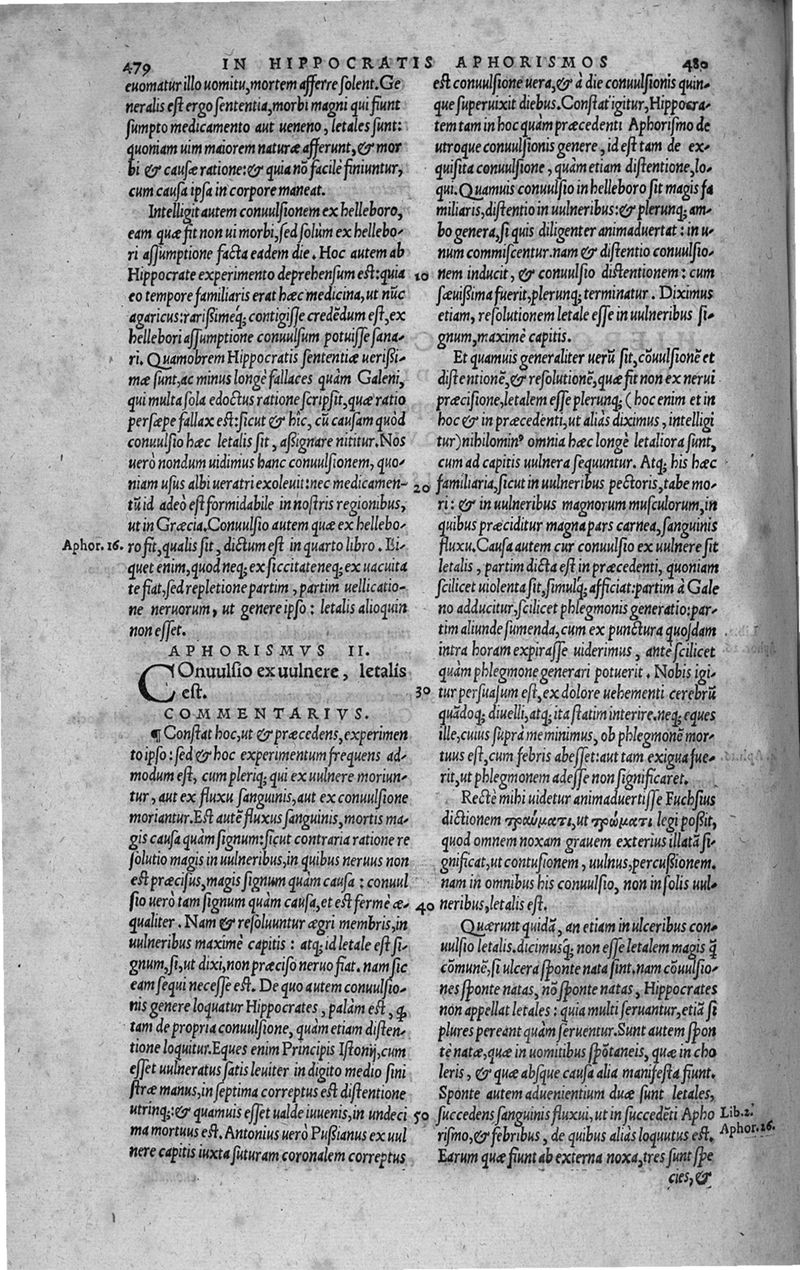 479 IN HIPPOCRATIS APHORISMOS 480
euomatur illo uomitu, mortem afferre solent. Ge
neralis est ergo sententia, morbi magni qui fiunt
sumpto medicamento aut ueneno, letales sunt:
quoniam uim maiorem naturæ afferunt, & mor
bi & causæ ratione: & quia nō facilè finiuntur,
cum causa ipsa in corpore maneat.
Intelligit autem conuulsionem ex helleboro,
eam quæ fit non ui morbi, sed solùm ex hellebo-
ri assumptione facta eadem die. Hoc autem ab
Hippocrate experimento deprehensum est: quia
eo tempore familiaris erat hæc medicina, ut nūc
agaricus: rarißimeq; contigisse credēdum est, ex
hellebori assumptione conuulsum potuisse sana-
ri. Quamobrem Hippocratis sententiæ uerißi-
mæ sunt, ac minus longè fallaces quàm Galeni,
qui multa sola edoctus ratione scripsit, quæ ratio
persæpe fallax est: sicut & hîc, cū causam quòd
conuulsio hæc letalis sit, aßignare nititur. Nos
uerò nondum uidimus hanc conuulsionem, quo-
niam usus albi ueratri exoleuit: nec medicamen-
tū id adeò est formidabile in nostris regionibus,
ut in Græcia. Conuulsio autem quæ ex hellebo-
Aphor. 16. ro fit, qualis sit, dictum est in quarto libro. Li-
quet enim, quod neq; ex siccitate neq; ex uacuita
te fiat, sed repletione partim, partim uellicatio-
ne neruorum, ut genere ipso: letalis alioquin
non esset.
APHORISMVS II.
COnuulsio ex uulnere, letalis
est.
COMMENTARIVS.
¶ Constat hoc, ut & præcedens, experimen
to ipso: sed & hoc experimentum frequens ad-
modum est, cum pleriq; qui ex uulnere moriun-
tur, aut ex fluxu sanguinis, aut ex conuulsione
moriantur. Est autē fluxus sanguinis, mortis ma-
gis causa quàm signum: sicut contraria ratione re
solutio magis in uulneribus, in quibus neruus non
est præcisus, magis signum quàm causa: conuul
sio uerò tam signum quàm causa, et est fermè æ-
qualiter. Nam & resoluuntur ægri membris, in
uulneribus maximè capitis: atq; id letale est si-
gnum, si, ut dixi, non præciso neruo fiat. nam sic
eam sequi necesse est. De quo autem conuulsio-
nis genere loquatur Hippocrates, palàm est, q̄
tam de propria conuulsione, quàm etiam disten-
tione loquitur. Eques enim Principis Istonij, cum
esset uulneratus satis leuiter in digito medio sini
stræ manus, in septima correptus est distentione
utrinq;: & quamuis esset ualde iuuenis, in undeci
ma mortuus est. Antonius uerò Pußianus ex uul
nere capitis iuxta suturam coronalem correptus
est conuulsione uera, & à die conuulsionis quin-
que superuixit diebus. Constat igitur, Hippocra-
tem tam in hoc quàm præcedenti Aphorismo de
utroque conuulsionis genere, id est tam de ex-
quisita conuulsione, quàm etiam distentione, lo-
qui. Quamuis conuulsio in helleboro sit magis fa
miliaris, distentio in uulneribus: & plerunq; am-
bo genera, si quis diligenter animaduertat: in u-
num commiscentur. nam & distentio conuulsio-
10 nem inducit, & conuulsio distentionem: cum
sæuißima fuerit, plerunq; terminatur. Diximus
etiam, resolutionem letale esse in uulneribus si-
gnum, maximè capitis.
Et quamuis generaliter uerū sit, cōuulsionē et
distentionē, & resolutionē, quæ fit non ex nerui
præcisione, letalem esse plerunq; (hoc enim et in
hoc & in præcedenti, ut aliàs diximus, intelligi
tur) nihilomin⁹ omnia hæc longè letaliora sunt,
cum ad capitis uulnera sequuntur. Atq; his hæc
20 familiaria, sicut in uulneribus pectoris, tabe mo-
ri: & in uulneribus magnorum musculorum, in
quibus præciditur magna pars carnea, sanguinis
fluxu. Causa autem cur conuulsio ex uulnere sit
letalis, partim dicta est in præcedenti, quoniam
scilicet uiolenta sit, simulq; afficiat: partim à Gale
no adducitur, scilicet phlegmonis generatio: par-
tim aliunde sumenda, cum ex punctura quosdam
intra horam expirasse uiderimus, ante scilicet
quàm phlegmone generari potuerit. Nobis igi-
30 tur persuasum est, ex dolore uehementi cerebrū
quādoq; diuelli, atq; ita statim interire. neq; eques
ille, cuius suprà meminimus, ob phlegmonē mor-
tuus est, cum febris abesset: aut tam exigua fue-
rit, ut phlegmonem adesse non significaret.
Rectè mihi uidetur animaduertisse Fuchsius
dictionem τραύματι, ut τρώματι legi poßit,
quod omnem noxam grauem exterius illatā si-
gnificat, ut contusionem, uulnus, percußionem.
nam in omnibus his conuulsio, non in solis uul-
40 neribus, letalis est.
Quærunt quidā, an etiam in ulceribus con-
uulsio letalis. dicimusq; non esse letalem magis q̄
cōmunē, si ulcera sponte nata sint. nam cōuulsio-
nes sponte natas, nō sponte natas, Hippocrates
non appellat letales: quia multi seruantur, etiā si
plures pereant quàm seruentur. Sunt autem spon
tè natæ, quæ in uomitibus spōtaneis, quæ in cho
leris, & quæ absque causa alia manifesta fiunt.
Sponte autem aduenientium duæ sunt letales,
50 succedens sanguinis fluxui, ut in succedēti Apho Lib. 2.
rismo, & febribus, de quibus aliàs loquutus est. Aphor. 26.
Earum quæ fiunt ab externa noxa, tres sunt spe
cies, &